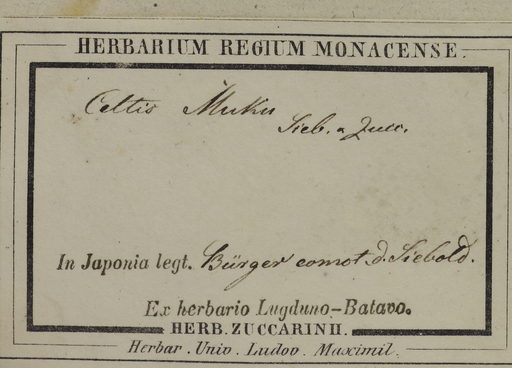 HERBARIUM REGIUM MONACENSE.
Celtis Muku
Sieb. a Zucc.
In Japonia legt. Bürger comot. d. Siebold.
Ex herbario Lugduno-Batavo.
HERB. ZUCCARINII.
Herbar. Univ. Ludov. Maximil.